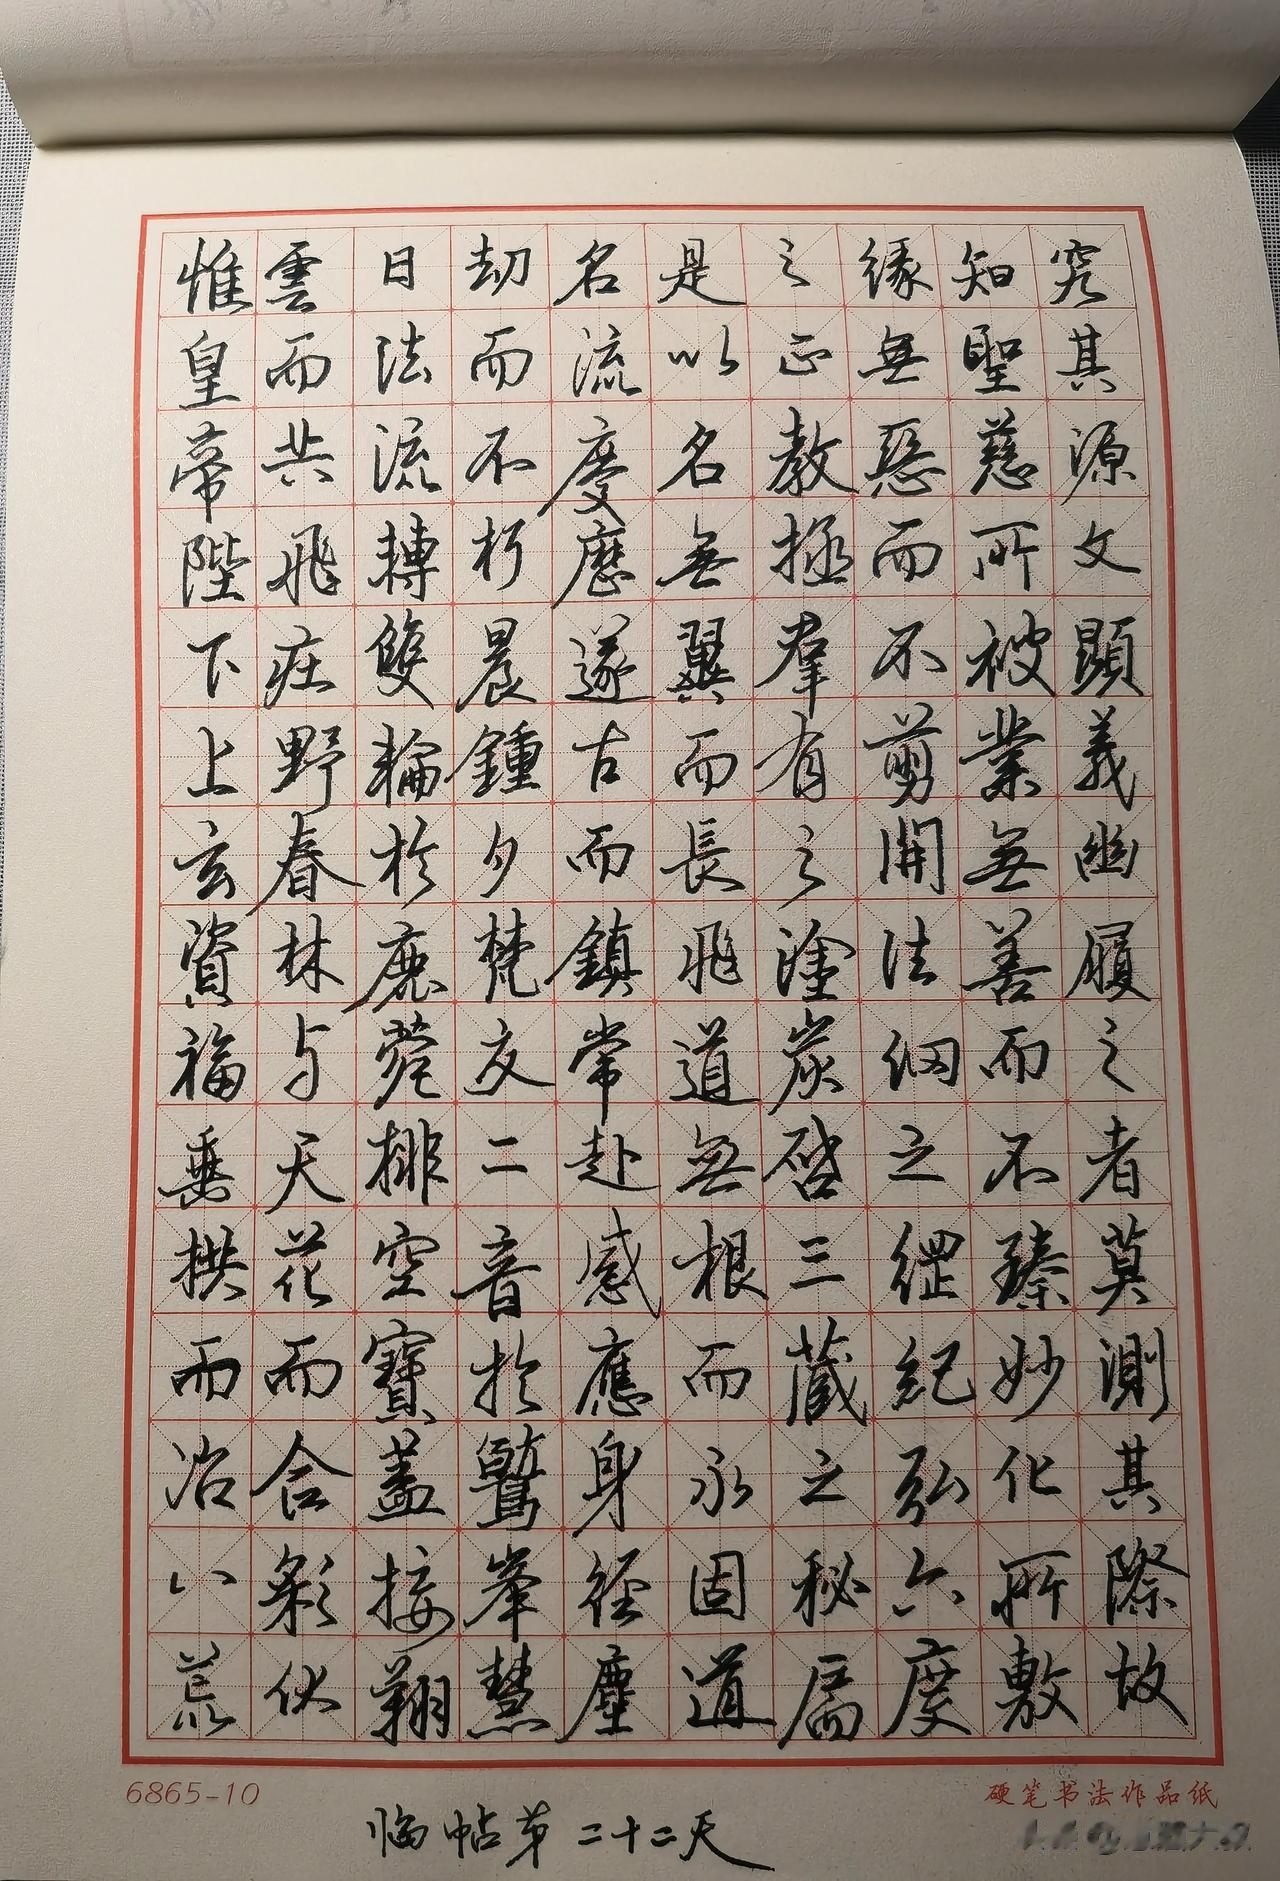 究其源文顯義幽履之者莫測其際故
知聖慈所被業無善而不臻妙化所敷
緣無惡而不剪開法网之綱紀弘六度
之正教拯群有之塗炭啓三藏之秘扃
是以名無翼而長飛道無根而永固道
名流慶歷遂古而鎮常赴感應身經塵
劫而不朽晨鍾夕梵交二音於鷲峯慧
日法流轉雙輪於鹿菀排空寶蓋接翔
雲而共飛莊野春林与天花而合彩伏
惟皇帝陛下上玄資福垂拱而治八荒
6865-10
硬笔书法作品纸
临帖第二十二天